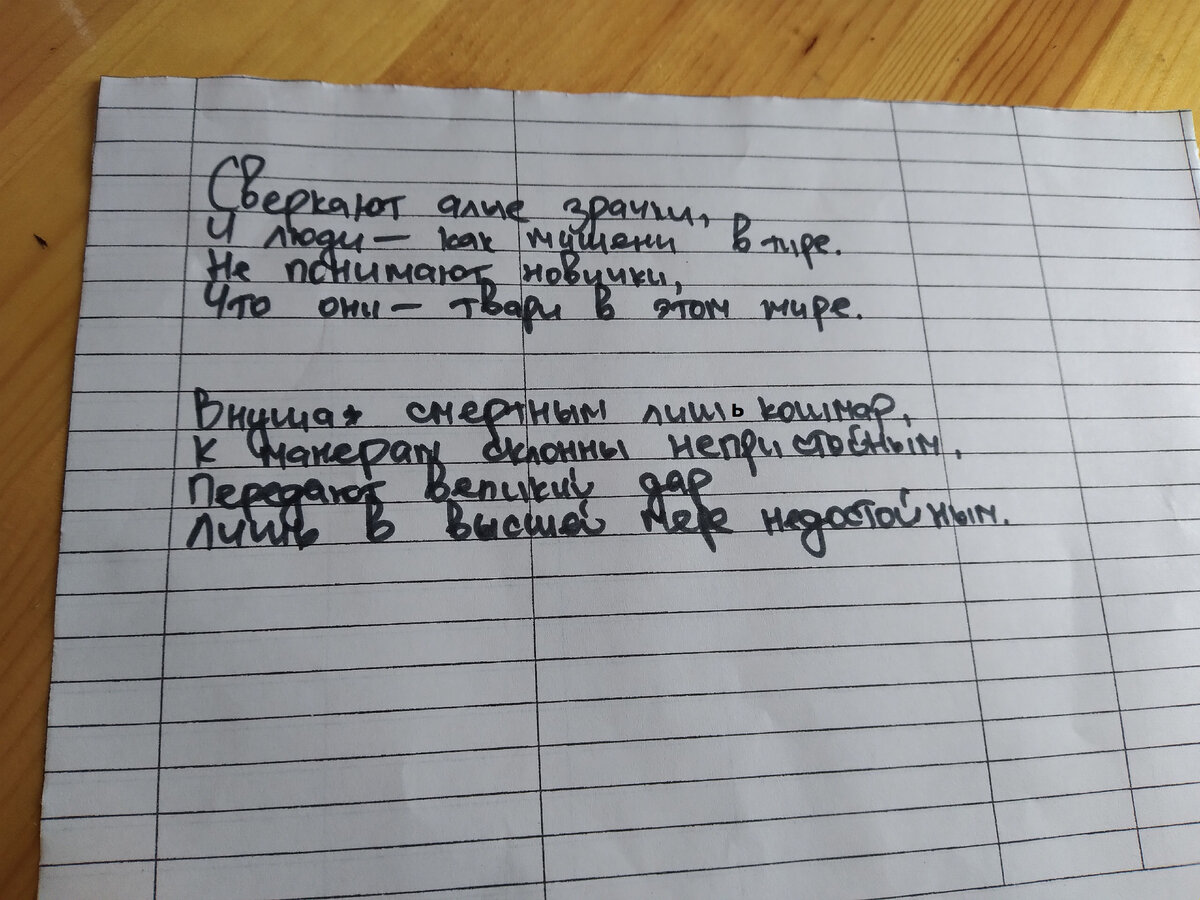 Сверкают алые зрачки,
И люди — как мишени в тире.
Не понимают новички,
Что они — твари в этом мире.
Внушая смертным лишь кошмар,
К манерам склонны непристойным.
Передают великий дар
Лишь в высшей мере недостойным.